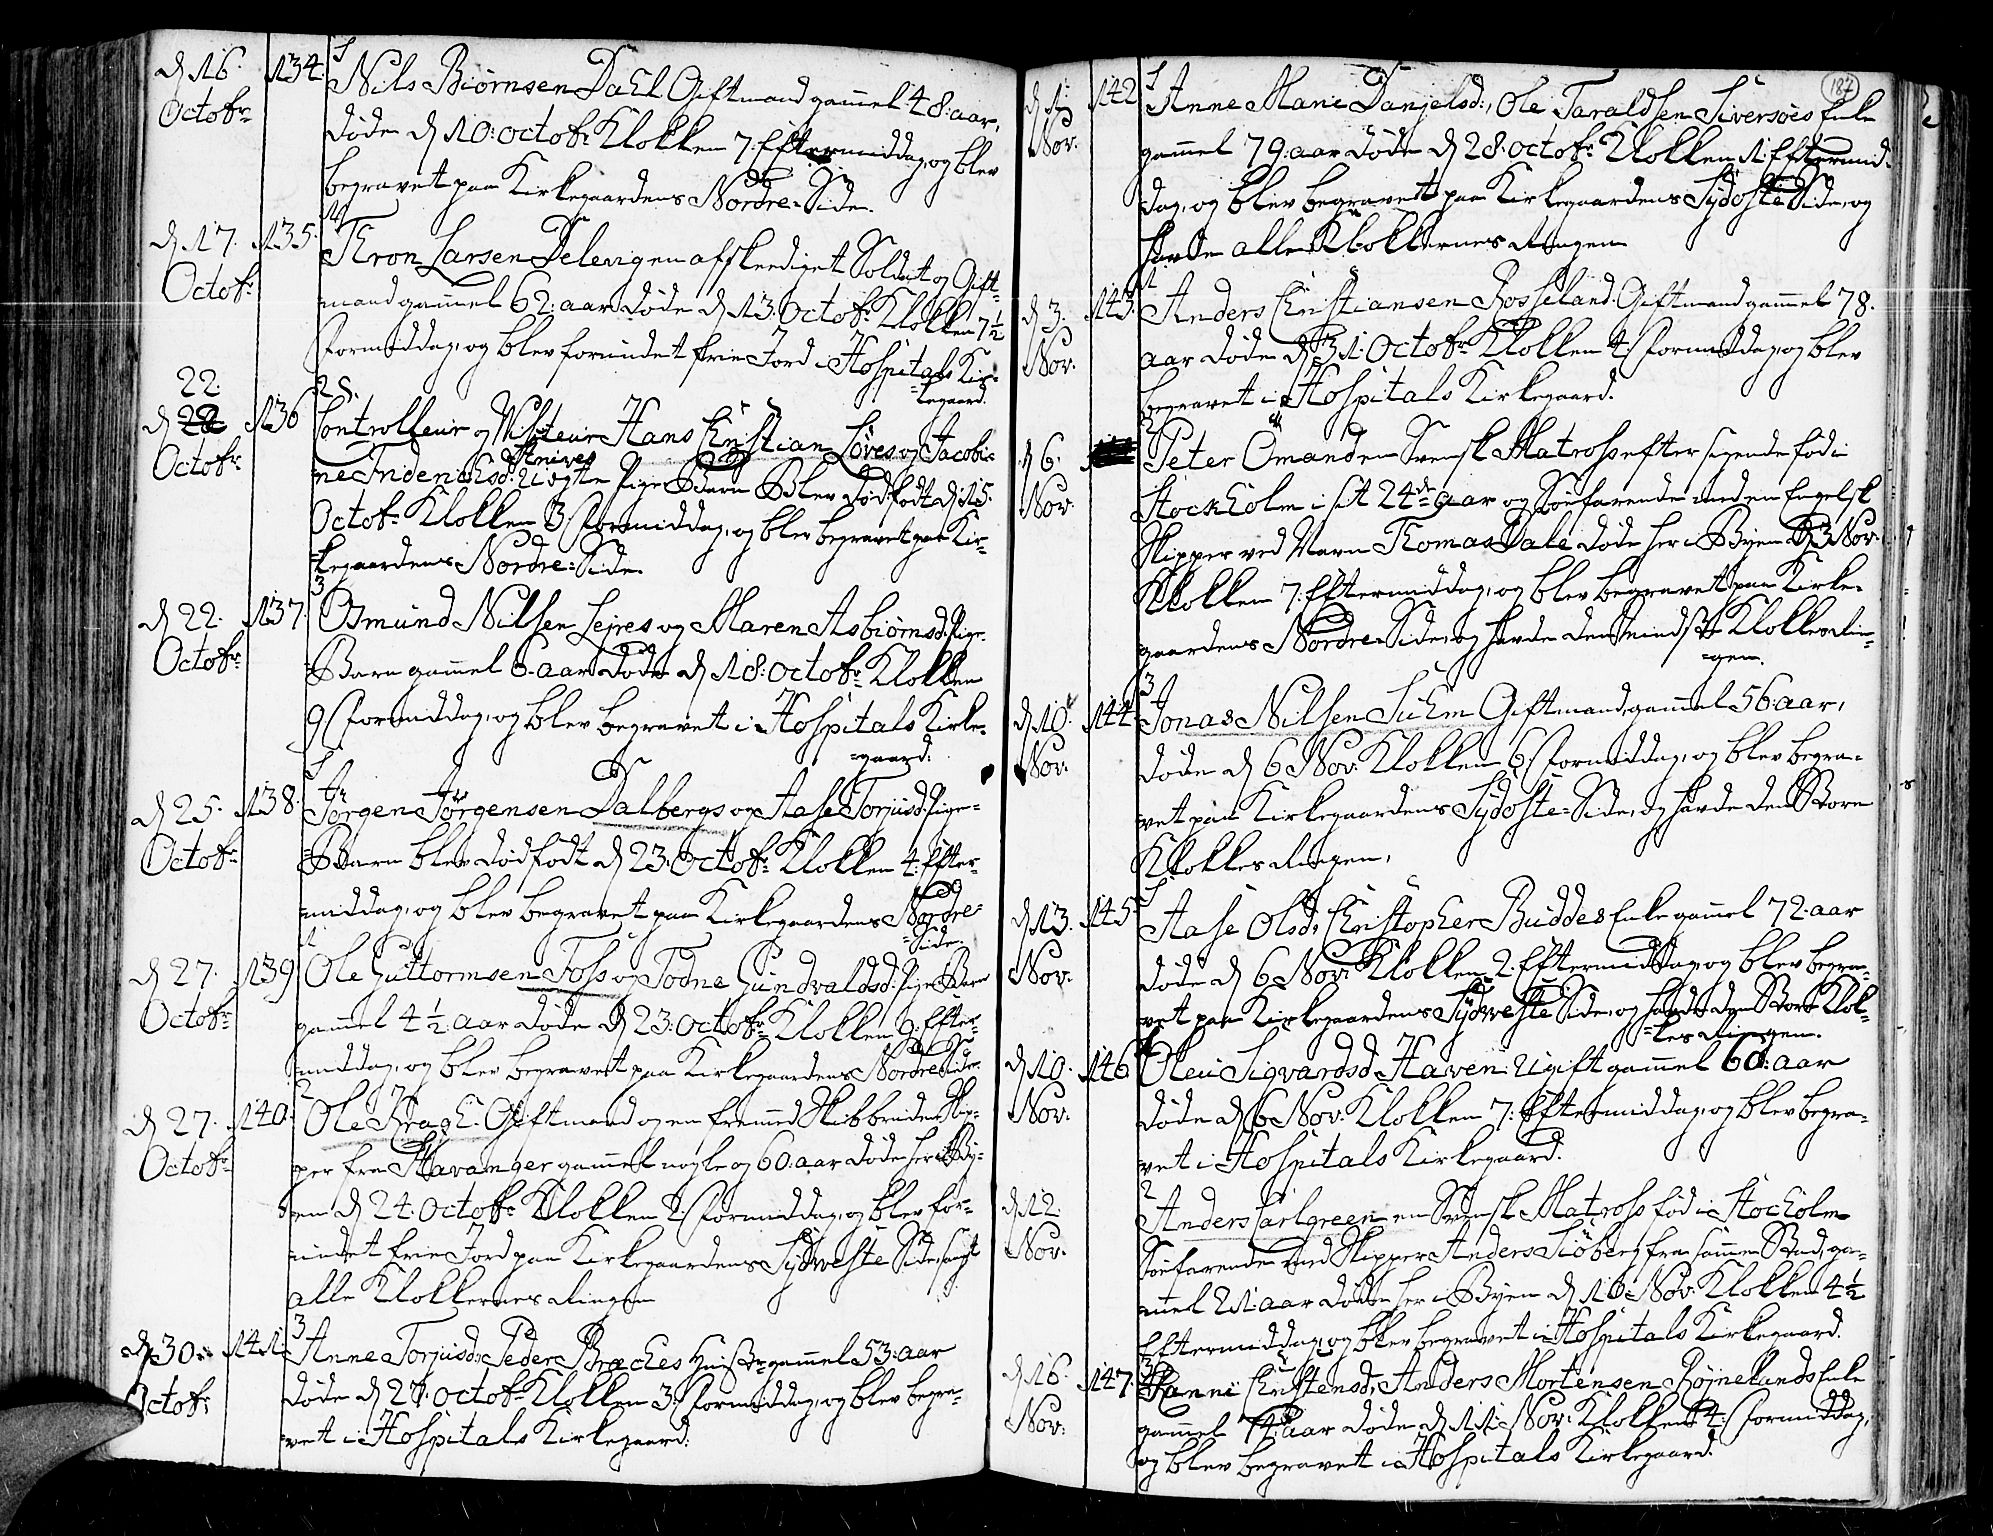 d 16. Octobr 134. Nils Biørnsen Dahl Giftmand gam̃el 48: aar,
døde d 10: Octobr Klokken 7: Eftermiddag, og blev
begravet paa Kirkegaardens Nordre-Side.
d 17. Octobr 135. Thron Larsen Delevigen afskeediget Soldat og Gift-
mand gam̃el 62: aar døde d 13. Octobr Klokken 7½
formiddag, og blev forundet frie Jord i Hospitals Kir-
=kegaard.
22.
d Octobr 136 Controlleur og Visiteur Hans Christian Løves og Jacobi-
ne Pige Barn Blev dødfødt d 15.
Octobr Klokken 3 formiddag, og blev begravet paa Kir-
kegaardens Nordre-Side.
d 22. Octobr 137. Osmund Nilsen Lejres og Maren Asbiørnsd: Pige-
Barn gam̃el 6. aar døde d 18: Octobr Klokken
9 formiddag, og blev begravet i Hospitals Kirke-
=gaard.
d 25. Octobr 138. Jørgen Jørgensen Dalbergs og Aase Torjusd: Pige-
Barn blev dødfødt d 23. Octobr Klokken 4. Efter-
middag, og blev begravet paa Kirkegaardens Nordre-
=Side.
d 27. Octobr 139. Ole Guttormsen Foss og Todne Gundvaldsd: Pige Barn
gam̃el 4½ aar døde d 23. Octobr Klokken 9. Efter-
middag, og blev begravet paa Kirkegaardens Nordre Side.
d 27. Octobr 140. Ole Kragh. Giftmand og en frem̃ed Skibbruden Skip-
per fra Stavanger gam̃el nogle og 60. aar døde her i By-
en d 24. Octobr Klokken 2 formiddag, og blev for-
undet frie Jord paa Kirkegaardens Sydveste Side, samt
alle Klokkernes Ringen
d 30. Octobr 141. Anne Torjusd: Peder Braches Huustr gam̃el 53: aar
døde d 27. Octobr Klokken 3. formiddag, og blev begra-
vet i Hospitals Kirkegaard.
187
d 1. Nov. 142 Anne Marie Danjelsd:, Ole Taraldsen Siversøes Enke
gam̃el 79: aar døde d 28. Octobr Klokken 1. Eftermid-
dag, og blev begravet paa Kirkegaardens Sydoste Side, og
havde alle Klokkernes Ringen
d 3. Nov. 143. Anders Christiansen Rosseland. Giftmand gam̃el 78.
aar døde d 31. Octobr Klokken 4 formiddag, og blev
begravet i Hospitals Kirkegaard.
d 6. Nov. Peter Ömand en Svensk Matross efter sigende fød i
Stockholm i sit 24de aar og Søefarende med en Engelsk
Skipper ved Navn Thomas Dale døde her i Byen d 3 Nov.
Klokken 7. Eftermiddag, og blev begravet paa Kirke-
gaardens Nordre-Side, og havde den mindste Klokkes Rin-
=gen.
d 10. Nov. 144. Jonas Nilsen Suhm Giftmand, gam̃el 56: aar,
døde d 6 Nov. Klokken 6 formiddag, og blev begra-
vet paa Kirkegaardens Sydoste-Side, og havde den Store
Klokkes Ringen,
d 13. Nov. 145. Aase Olsd: Christopher Buddes Enke gam̃el 72. aar
døde d 6 Nov. Klokken 2. Eftermiddag, og blev begra-
vet paa Kirkegaardens Sydveste Side, og havde den Store Klok-
=kes Ringen.
d 10. Nov. 146 Oleu Sigvardsd Haven: Ugift gam̃el 60: aar
døde d 6 Nov. Klokken 7. Eftermiddag, og blev begra-
vet i Hospitals Kirkegaard.
d 12. Nov. Anders Carlgreen en Svensk Matross fød i Stocholm
Søefarende med Skipper Anders Siöberg fra sam̃e Stad, ga-
m̃el 21. aar døde her i Byen d 10. Nov. Klokken 4½
Eftermiddag, og blev begravet i Hospitals Kirkegaard.
d 16. Nov. 147. Christensd: Anders Mortensen Røjnelands Enke
gam̃el 74: aar døde d 11. Nov. Klokken 4: formiddag,
og blev begravet i Hospitals Kirkegaard.